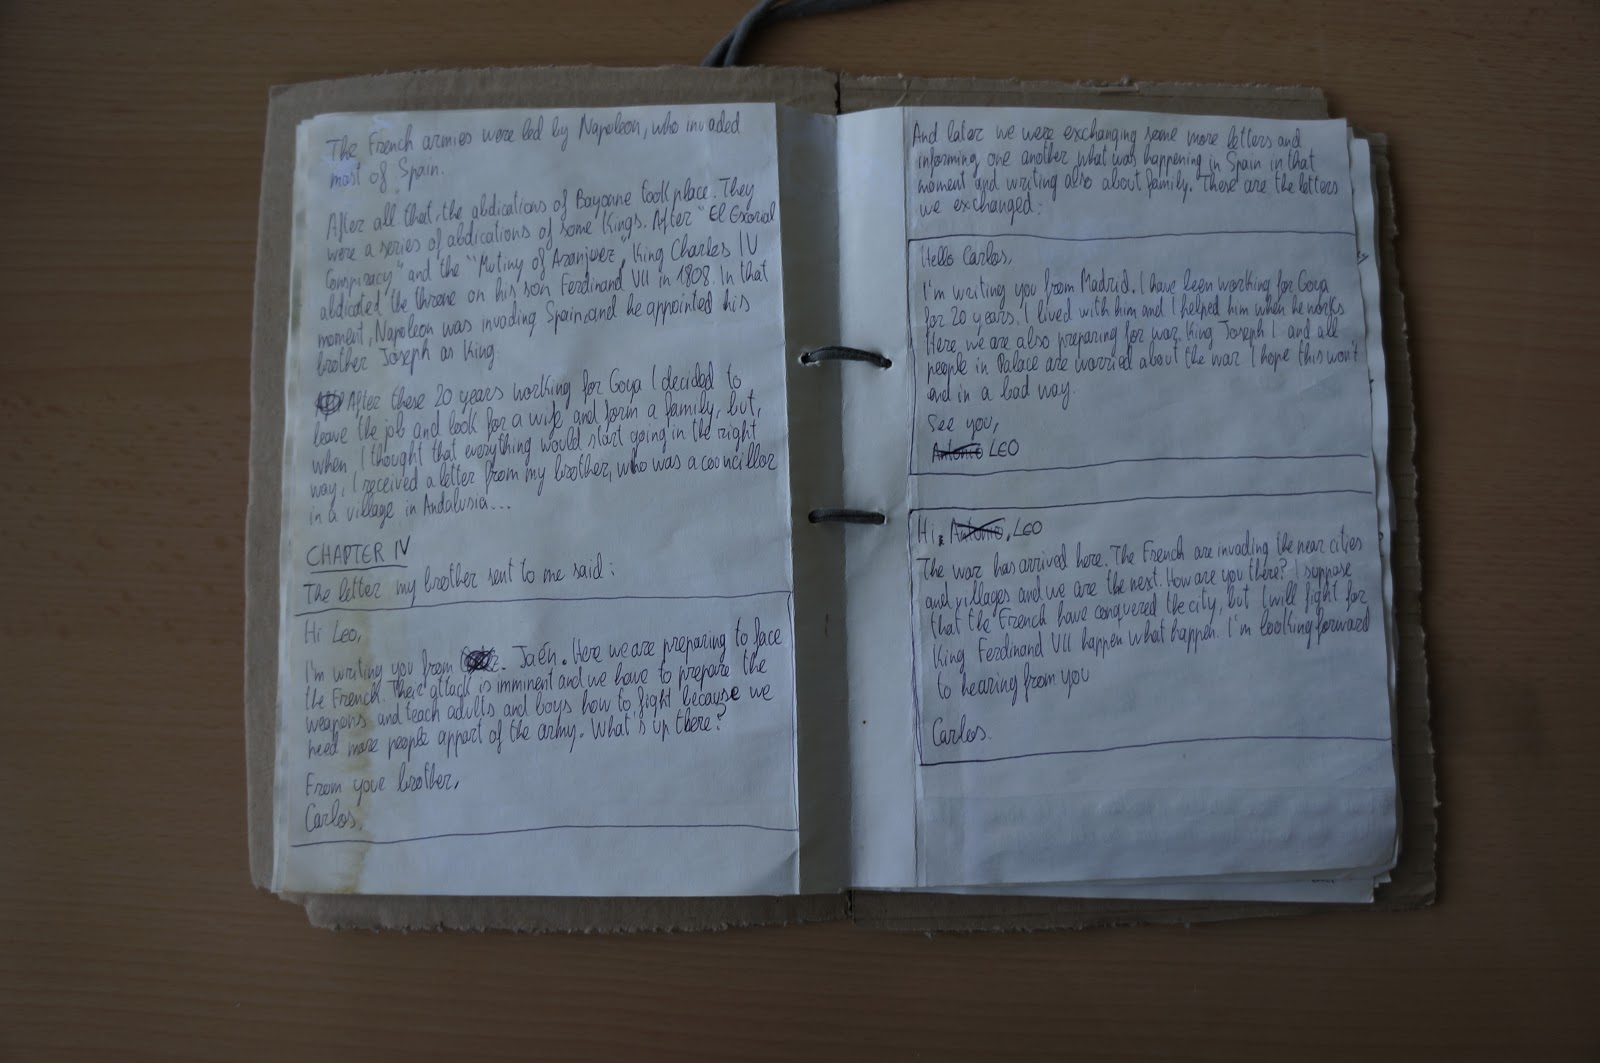 The French armies were led by Napoleon, who invaded
most of Spain.
After all that, the abdications of Bayonne took place. They
were a series of abdications of some Kings. After "El Escorial
Conspiracy" and the "Mutiny of Aranjuez", King Charles IV
abdicated the throne on his son Ferdinand VII in 1808. In that
moment, Napoleon was invading Spain, and he appointed his
brother Joseph as King.
After these 20 years working for Goya I decided to
leave the job and look for a wife and form a family, but,
when I thought that everything would start going in the right
way, I received a letter from my brother, who was a councillor
in a village in Andalusia...
CHAPTER IV
The letter my brother sent to me said:
Hi Leo,
I'm writing you from Jaén. Here we are preparing to face
the French. Their attack is imminent and we have to prepare the
weapons and teach adults and boys how to fight because we
need more people appart of the army. What's up there?
From your brother,
Carlos.
And later we were exchanging some more letters and
informing one another what was happening in Spain in that
moment and writing also about family. These are the letters
we exchanged:
Hello Carlos,
I'm writing you from Madrid. I have been working for Goya
for 20 years. I lived with him and I helped him when he works
Here, we are also preparing for war. King Joseph I and all
people in Palace are worried about the war. I hope this won't
end in a bad way.
See you,
Antonio LEO
Hi, Antonio, LEO
The war has arrived here. The French are invading the near cities
and villages and we are the next. How are you there? I suppose
that the French have conquered the city, but I will fight for
King Ferdinand VII happen what happen. I'm looking forward
to hearing from you
Carlos.